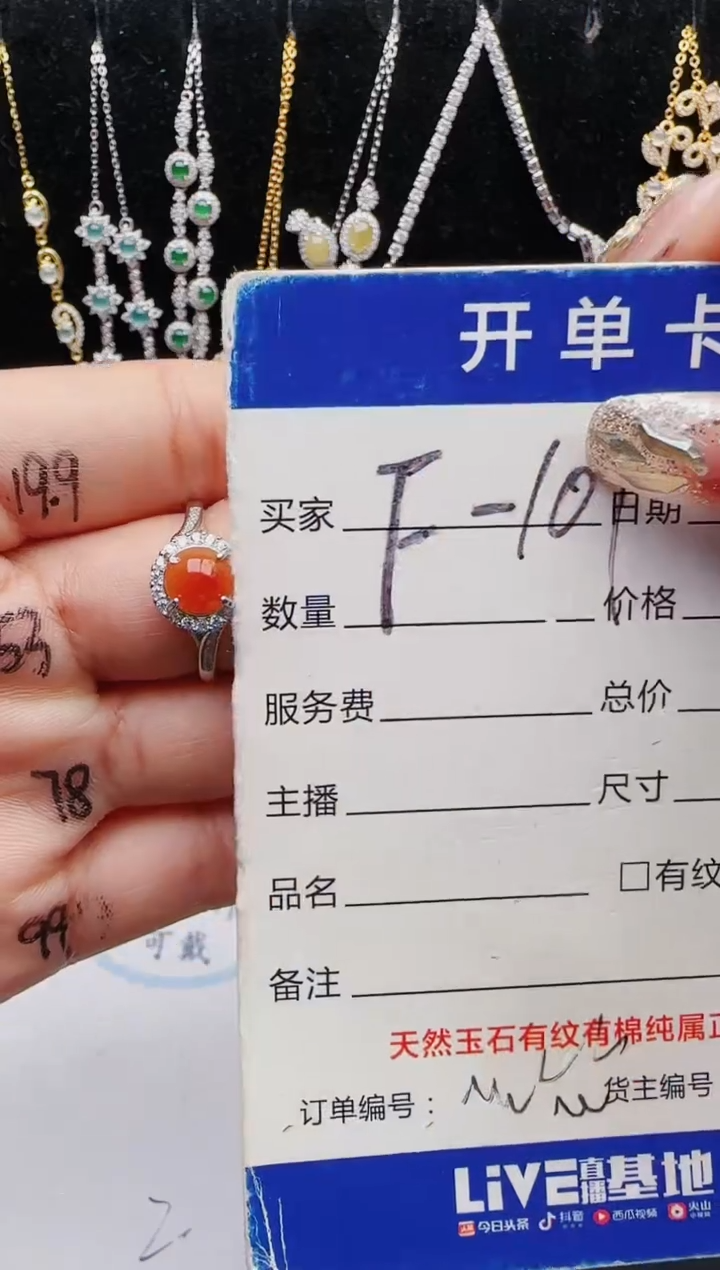 开单卡
199
买家 F-10 日期
数量 价格
服务费 总价
78
主播 尺寸
品名 □有纹
99
可戴
备注
天然玉石有纹有棉纯属正
订单编号： 货主编号
LiVE直播基地
今日头条 抖音 西瓜视频 火山
2.